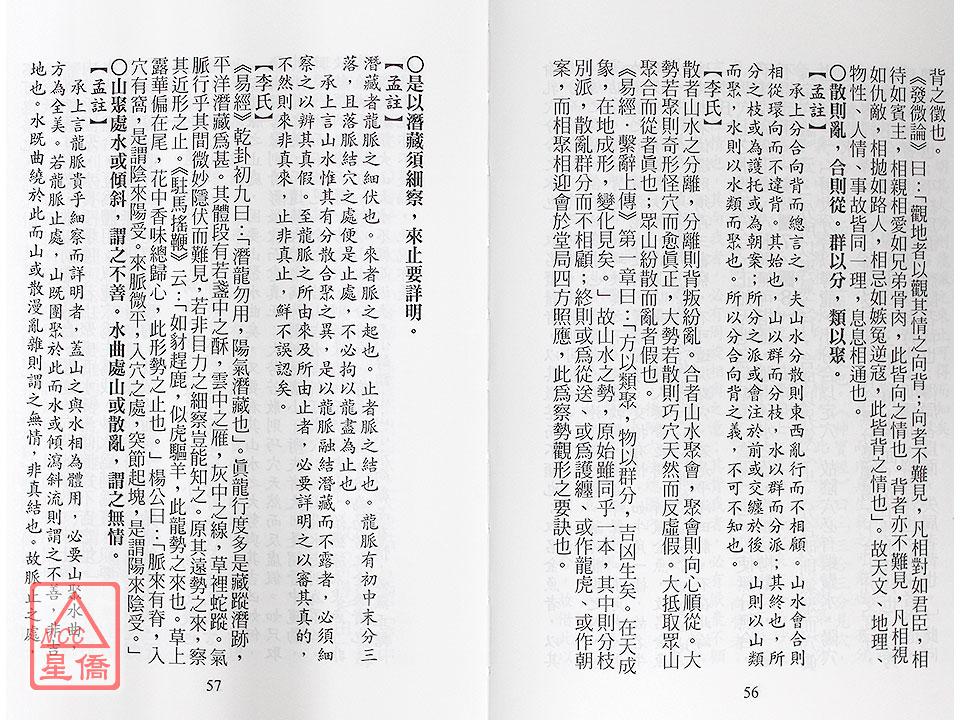 背之徵也。
《發微論》曰：「觀地者以觀其情之向背；向者不難見，凡相對如君臣，相
待如賓主，相親相愛如兄弟骨肉，此皆向之情也。背者亦不難見，凡相視
如仇敵，相拋如路人，相忌如嫉冤逆寇，此皆背之情也」。故天文、地理、
物性、人情、事故皆同一理，息息相通也。
〇散則亂，合則從。群以分，類以聚。
【孟註】
承上分合向背而總言之，夫山水分散則東西亂行而不相顧。山水會合則
相從環向而不違背。其始也，山以群而分枝，水以群而分派；其終也，所
分之枝或為護托或為朝案；所分之派或會注於前或交纏於後。山則以山類
而聚，水則以水類而聚也。所以分合向背之義，不可不知也。
【李氏】
散者山水之分離，分離則背叛紛亂。合者山水聚會，聚會則向心順從。大
勢若聚則奇形怪穴而愈眞正，大勢若散則巧穴天然而反虛假。大抵取眾山
聚合而從者眞也；眾山紛散而亂者假也。
《易經，繫辭上傳》第一章曰：「方以類聚，物以群分，吉凶生矣。在天成
象，在地成形，變化見矣。」故山水之勢，原始雖同乎一本，其中則分枝
別派，而散亂群分而不相顧；終則或為從送、或為護纏、或作龍虎、或作朝
案，而相聚相迎會於堂局四方照應，此為察勢觀形之要訣也。
56
〇是以潛藏須細察，來止要詳明。
【孟註】
潛藏者龍脈之細伏也。來者脈之起也。止者脈之結也。龍脈有初中末分三
落，且落脈結穴之處便是止處，不必拘以龍盡為止也。
承上言山水惟其有分散合聚之異，是以龍脈融結潛藏而不露者，必須細
察之以辨其真假。至龍脈之所由來及所由止者，必要詳明之以審其真的，
不然則來非真來，止非真止，鮮不誤認矣。
【李氏】
《易經》乾卦初九曰：「潛龍勿用，陽氣潛藏也」。眞龍行度多是藏蹤潛跡，
平洋潛藏爲甚。其體段有若盞中之酥，雲中之雁，灰中之線，草裡蛇蹤。氣
脈行乎其間微妙隱伏而難見，若非目力之細察豈能知之。原其遠勢之來，察
其近形之止。《駐馬搖鞭》云：「如豺趕鹿，似虎驅羊，此龍勢之來也。草上
露華偏在尾，花中香味總歸心，此形勢之止也。」楊公曰：「脈來有脊，入
穴有窩，是謂陰來陽受。來脈微平，入穴之處，突節起塊，是謂陽來陰受。」
〇山聚處水或傾斜，謂之不善。水曲處山或散亂，謂之無情。
【孟註】
承上言龍脈貴乎細察而詳明者，蓋山之與水相為體用，必要山聚水曲，
方為全美。若龍脈止處，山既團聚於此而水或傾瀉斜流則謂之不善，非吉
地也。水既曲繞於此而山或散漫亂雜則謂之無情，非真結也。故脈止之處，
57
icc
星僑